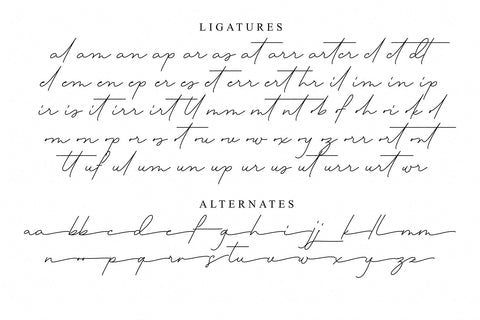 LIGATURES
al am an ap ar as at arr arter cl ct dt
el em en ep er es et err ert hr il im in ip
ir is it irr irt ll mm mt nt ob of oh oi ok ol
om on op or os ot ou ov ow ox oy oz orr ort ont
tt uf ul um un up ur us ut urr urt wr
ALTERNATES
aa bb c d e f g h i jj k ll mm
n oo p q r s t u v w x y z